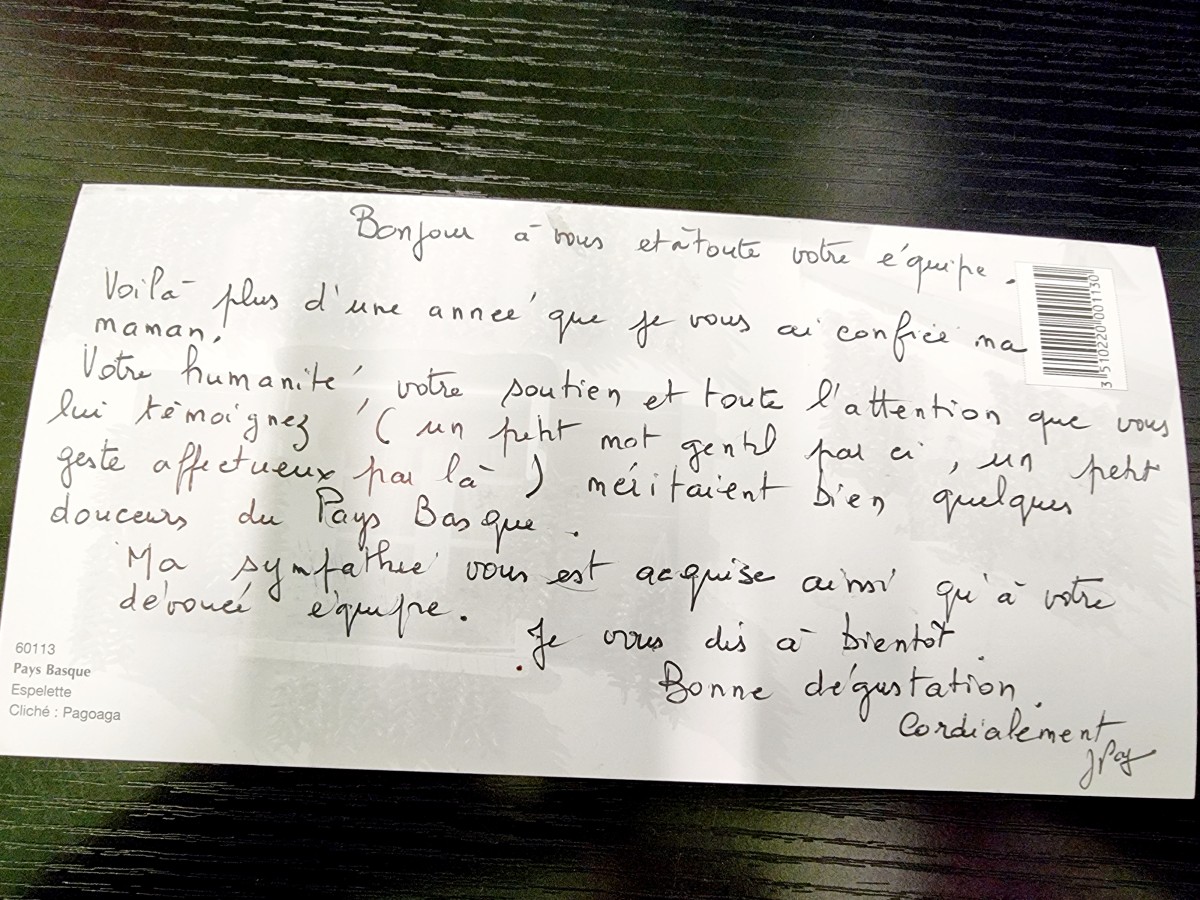 Bonjour à vous et à toute votre équipe.
Voilà plus d'une année que je vous ai confiée ma
maman.
Votre humanité, votre soutien et toute l'attention que vous
lui témoignez (un petit mot gentil par ci, un petit
geste affectueux par là) méritaient bien quelques
douceurs du Pays Basque.
Ma sympathie vous est acquise ainsi qu'à votre
dévouée équipe.
Je vous dis à bientôt.
Bonne dégustation.
Cordialement
3 510220 001130
60113
Pays Basque
Espelette
Cliché : Pagoaga